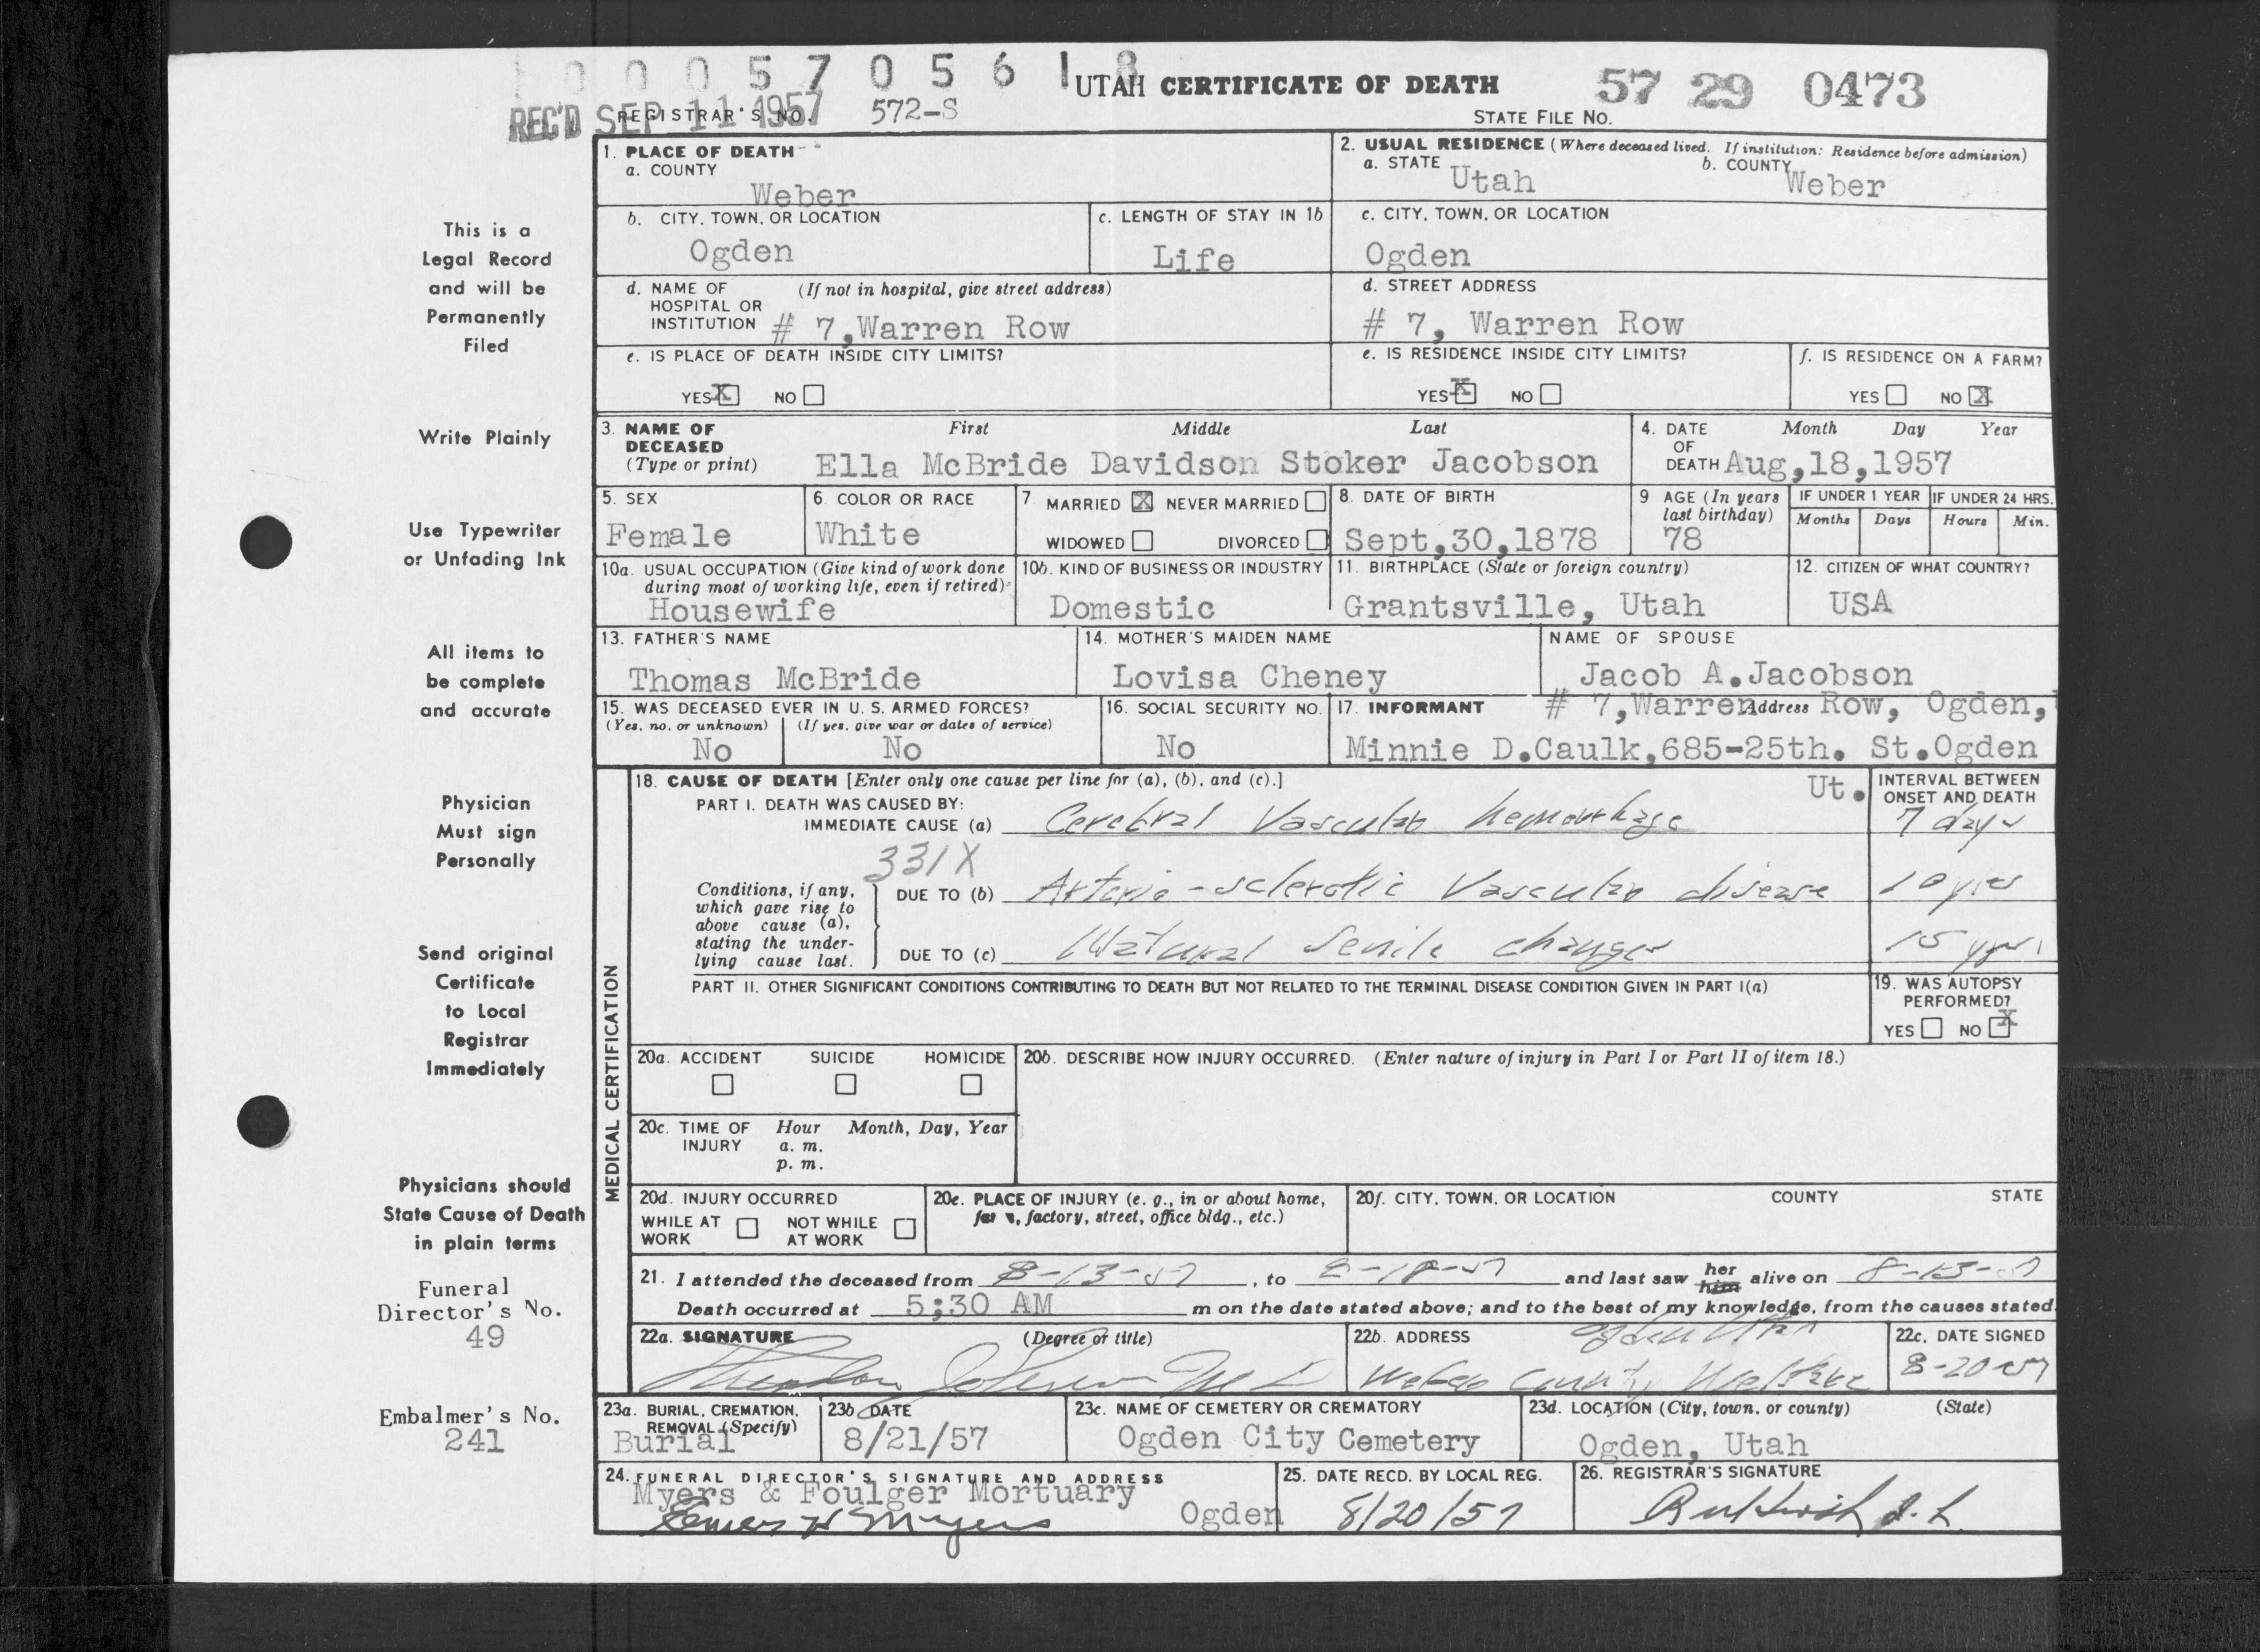 1 0 0 0 5 7 0 5 6 1 8
UTAH CERTIFICATE OF DEATH
57 29 0473
REC'D SEP 11 1957
REGISTRAR'S NO. 572-S
STATE FILE NO.
This is a
Legal Record
and will be
Permanently
Filed
Write Plainly
Use Typewriter
or Unfading Ink
All items to
be complete
and accurate
Physician
Must sign
Personally
Send original
Certificate
to Local
Registrar
Immediately
Physicians should
State Cause of Death
in plain terms
Funeral
Director's No.
49
Embalmer's No.
241
1. PLACE OF DEATH
a. COUNTY
Weber
2. USUAL RESIDENCE (Where deceased lived. If institution: Residence before admission)
a. STATE Utah b. COUNTY Weber
b. CITY, TOWN, OR LOCATION
Ogden
c. LENGTH OF STAY IN 1b
Life
c. CITY, TOWN, OR LOCATION
Ogden
d. NAME OF (If not in hospital, give street address)
HOSPITAL OR
INSTITUTION # 7,Warren Row
d. STREET ADDRESS
# 7, Warren Row
e. IS PLACE OF DEATH INSIDE CITY LIMITS?
YES X NO
e. IS RESIDENCE INSIDE CITY LIMITS?
YES X NO
f. IS RESIDENCE ON A FARM?
YES NO X
3. NAME OF DECEASED (Type or print)
First Middle Last
Ella McBride Davidson Stoker Jacobson
4. DATE OF DEATH Month Day Year
Aug,18,1957
5. SEX
Female
6. COLOR OR RACE
White
7. MARRIED X NEVER MARRIED
WIDOWED DIVORCED
8. DATE OF BIRTH
Sept,30,1878
9 AGE (In years last birthday)
78
IF UNDER 1 YEAR
Months Days
IF UNDER 24 HRS.
Hours Min.
10a. USUAL OCCUPATION (Give kind of work done
during most of working life, even if retired)
Housewife
10b. KIND OF BUSINESS OR INDUSTRY
Domestic
11. BIRTHPLACE (State or foreign country)
Grantsville, Utah
12. CITIZEN OF WHAT COUNTRY?
USA
13. FATHER'S NAME
Thomas McBride
14. MOTHER'S MAIDEN NAME
Lovisa Cheney
NAME OF SPOUSE
Jacob A.Jacobson
15. WAS DECEASED EVER IN U. S. ARMED FORCES?
(Yes, no, or unknown) (If yes, give war or dates of service)
No No
16. SOCIAL SECURITY NO.
No
17. INFORMANT Address
# 7,Warren Row, Ogden,
Minnie D.Caulk,685-25th. St.Ogden
Ut.
MEDICAL CERTIFICATION
18. CAUSE OF DEATH [Enter only one cause per line for (a), (b), and (c).]
INTERVAL BETWEEN
ONSET AND DEATH
PART I. DEATH WAS CAUSED BY:
IMMEDIATE CAUSE (a) Cerebral Vascular hemorrhage 7 days
331X
Conditions, if any,
which gave rise to
above cause (a),
stating the under-
lying cause last.
DUE TO (b) Arterio-sclerotic Vascular disease 10 yrs
DUE TO (c) Natural Senile changes 15 yrs
PART II. OTHER SIGNIFICANT CONDITIONS CONTRIBUTING TO DEATH BUT NOT RELATED TO THE TERMINAL DISEASE CONDITION GIVEN IN PART I(a)
19. WAS AUTOPSY
PERFORMED?
YES NO X
20a. ACCIDENT SUICIDE HOMICIDE
20b. DESCRIBE HOW INJURY OCCURRED. (Enter nature of injury in Part I or Part II of item 18.)
20c. TIME OF INJURY Hour Month, Day, Year
a. m.
p. m.
20d. INJURY OCCURRED
WHILE AT WORK NOT WHILE AT WORK
20e. PLACE OF INJURY (e. g., in or about home,
factory, street, office bldg., etc.)
20f. CITY, TOWN, OR LOCATION COUNTY STATE
21. I attended the deceased from 8-13-57, to 8-18-57 and last saw her him alive on 8-13-57
Death occurred at 5;30 AM m on the date stated above; and to the best of my knowledge, from the causes stated.
22a. SIGNATURE (Degree or title)
22b. ADDRESS Ogden Utah
Weber County Welfare
22c. DATE SIGNED
8-20-57
23a. BURIAL, CREMATION,
REMOVAL (Specify)
Burial
23b DATE
8/21/57
23c. NAME OF CEMETERY OR CREMATORY
Ogden City Cemetery
23d. LOCATION (City, town, or county) (State)
Ogden, Utah
24. FUNERAL DIRECTOR'S SIGNATURE AND ADDRESS
Myers & Foulger Mortuary
Ogden
25. DATE RECD. BY LOCAL REG.
8/20/57
26. REGISTRAR'S SIGNATURE